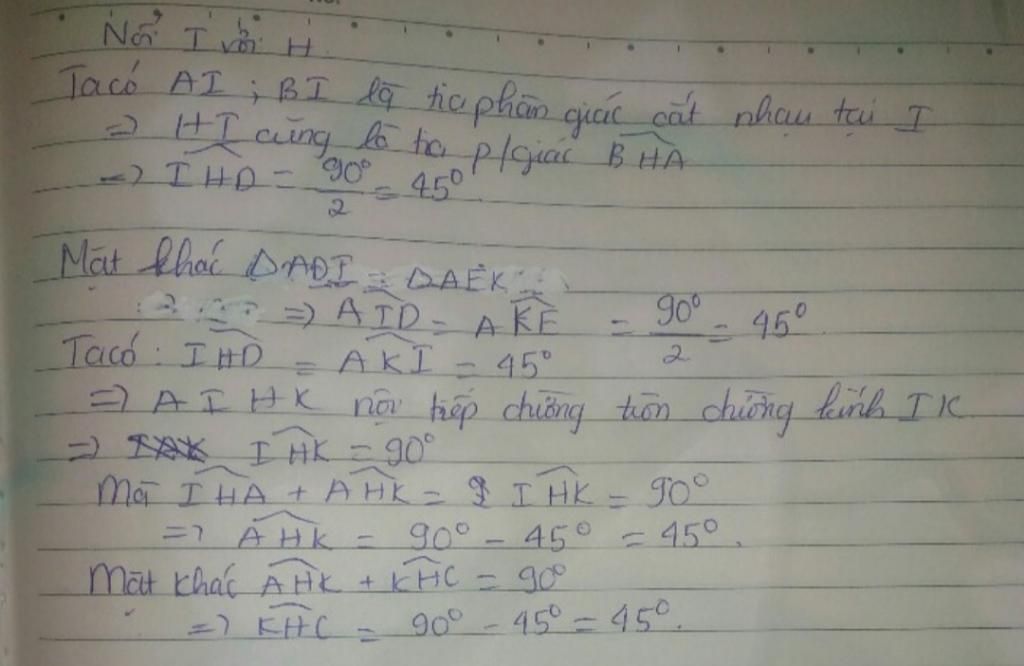 Nối I với H.
Ta có AI ; BI là tia phân giác cắt nhau tại I
=> HI cũng là tia p/giác \widehat{BHA}
=> \widehat{IHD} = \frac{90^0}{2} = 45^0.
Mặt khác ΔADI = ΔAEK
=> \widehat{AID} = \widehat{AKE} = \frac{90^0}{2} = 45^0
Ta có : \widehat{IHD} = \widehat{AKI} = 45^0
=> A I H K nội tiếp đường tròn đường kính IK
=> \widehat{IHK} = 90^0
Mà \widehat{IHA} + \widehat{AHK} = \widehat{IHK} = 90^0
=> \widehat{AHK} = 90^0 - 45^0 = 45^0.
Mặt khác \widehat{AHK} + \widehat{KHC} = 90^0
=> \widehat{KHC} = 90^0 - 45^0 = 45^0.